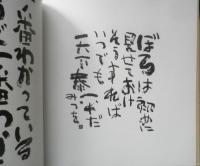 ぼろは初めに
見せておけ
そうすれば
いつでも
天下泰平だ
みつを
番わかっている